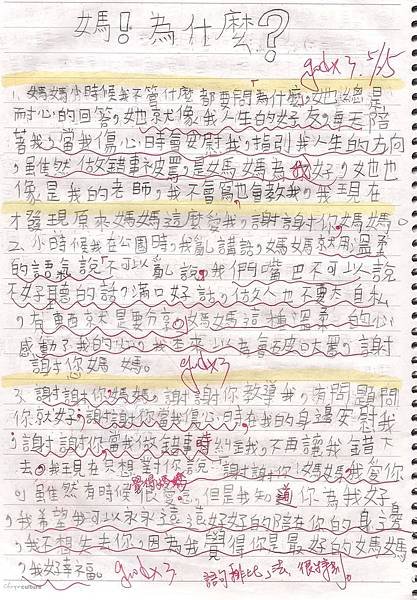 媽!為什麼?
good×3. 5/25
1. 媽媽小時候我不管什麼都要問「為什麼」她總是
耐心的回答,她就像我人生的好友,每天陪
著我,當我傷心時會安慰我,指引我人生的方向
,雖然做錯事被罵,是媽媽為我好,她也
像是我的老師,我不會寫也會教我,我現在
才發現原來媽媽這麼愛我,謝謝你媽媽。
二、小時候我在公園時,我亂講話,媽媽就用溫柔
的語氣說「不可以亂說,我們嘴巴不可以說
不好聽的話,滿口好話,做人也不要太自私
,有東西就是要分享」媽媽這種溫柔的心
感動了我的心,我本來以為會破口大罵,謝
謝您媽媽。 good×3
3. 謝謝你媽媽,謝謝你教導我,有問題問
你就好,謝謝你當我傷心時在我的身邊安慰我
,謝謝你當我做錯事時糾正我,不再讓我錯下
去。我現在只想對你說:「謝謝你!媽媽我愛你
」雖然有時候覺得媽媽很愛念,但是我知道你為我好
,我希望我可以永永遠遠好好的陪在你的身邊
,我不想失去你,因為我覺得你是最好的媽媽
,我好幸福。 good×3 詞排比方法,很特別。